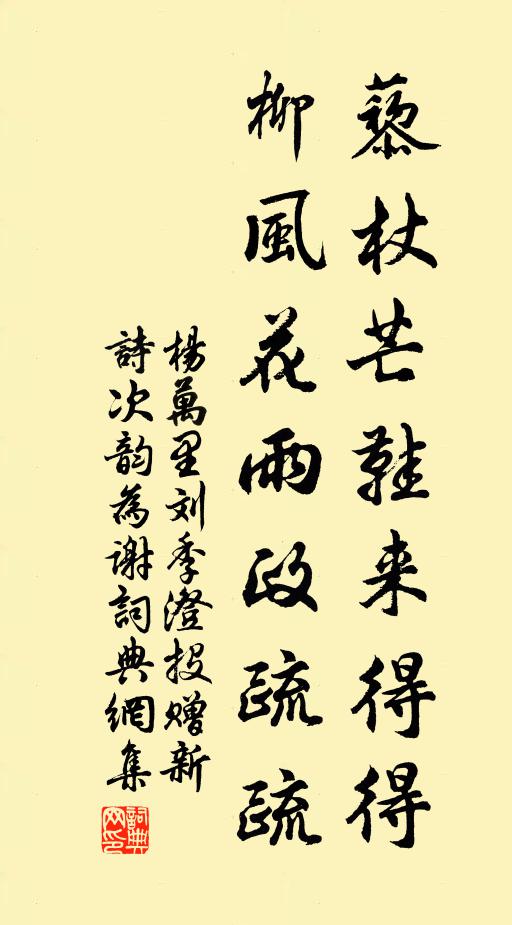 藜杖芒鞋来得得
柳風花雨政疏疏
楊萬里刘季澄投赠新
詩次韵為謝詞典網集
詞典網印